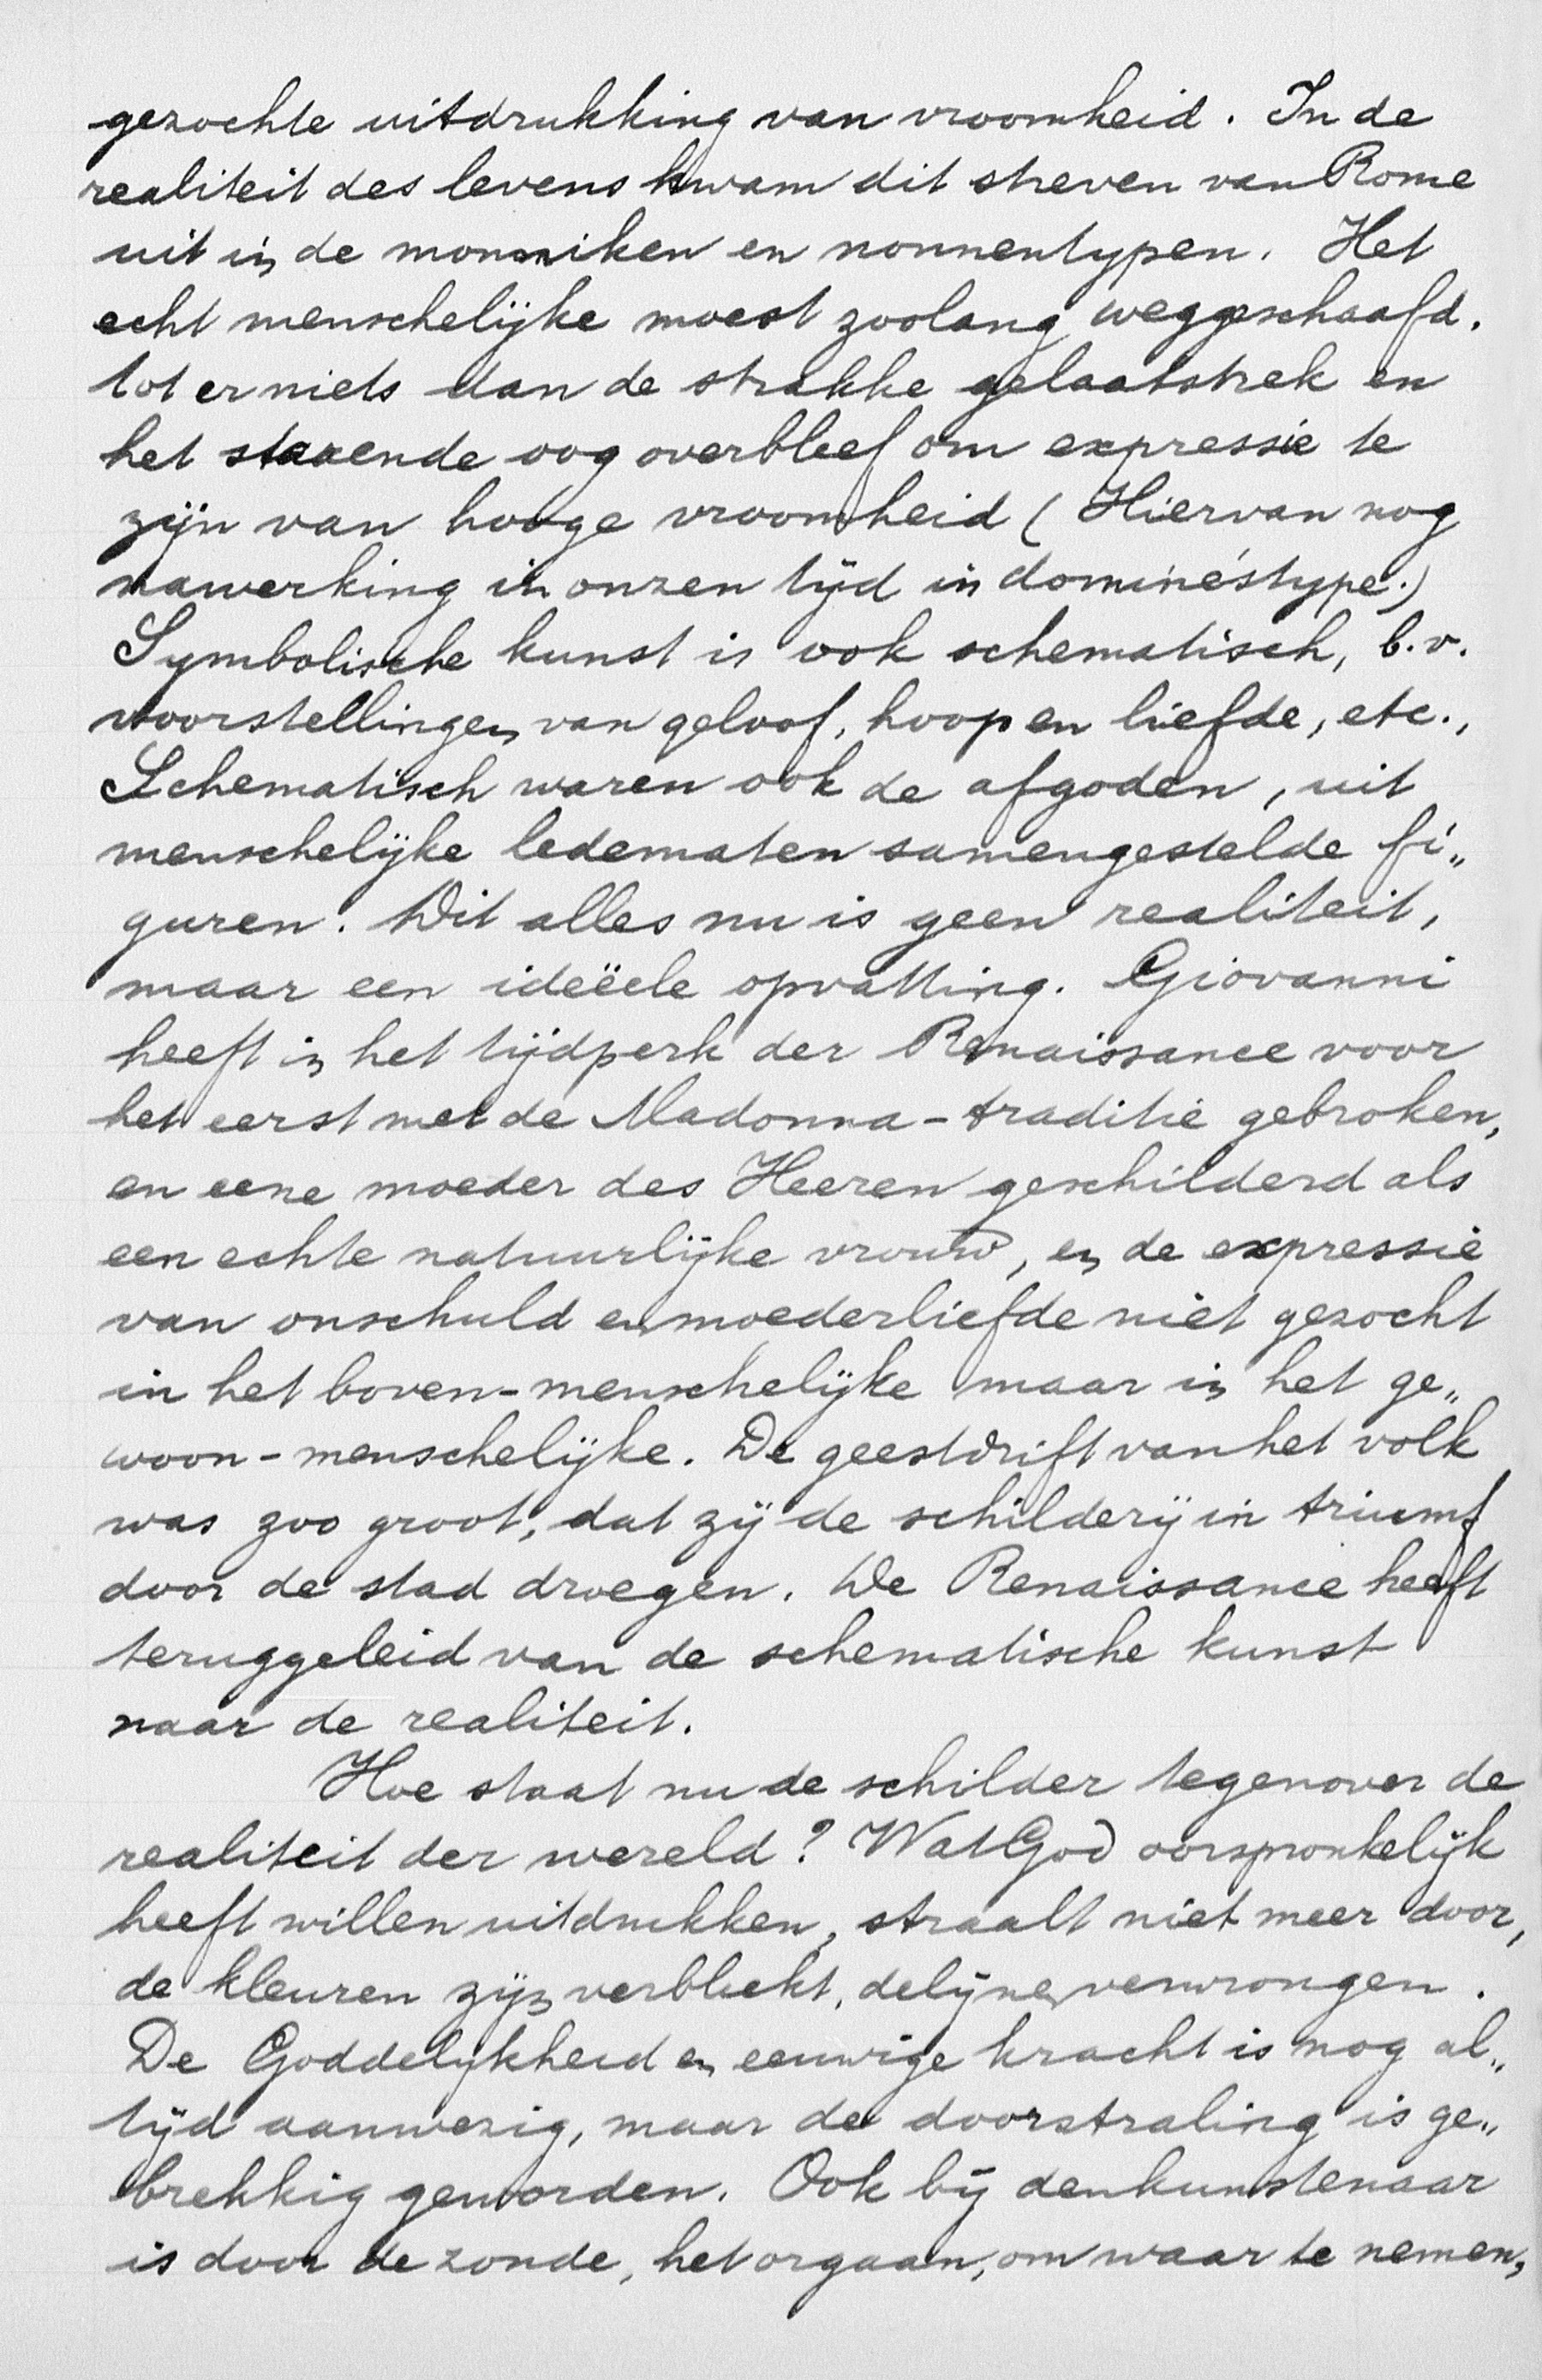 gezochte uitdrukking van vroomheid. In de
realiteit des levens kwam dit streven van Rome
uit in de monniken en nonnentypen. Het
echt menschelijke moest zoolang weggeschaafd.
tot er niets dan de strakke gelaatstrek en
het starende oog overbleef om expressie te
zijn van hooge vroomheid (Hiervan nog
nawerking in onzen tijd in dominéstype.)
Symbolische kunst is ook schematisch, b.v.
voorstellingen van geloof, hoop en liefde, etc.,
Schematisch waren ook de afgoden, uit
menschelijke ledematen samengestelde fi„
guren. Dit alles nu is geen realiteit,
maar een ideëele opvatting. Giovanni
heeft in het tijdperk der Renaissance voor
het eerst met de Madonna-traditie gebroken,
en eene moeder des Heeren geschilderd als
een echte natuurlijke vrouw, en de expressie
van onschuld en moederliefde niet gezocht
in het boven-menschelijke maar in het ge„
woon-menschelijke. De geestdrift van het volk
was zoo groot, dat zij de schilderij in triumf
door de stad droegen. De Renaissance heeft
teruggeleid van de schematische kunst
naar de realiteit.
Hoe staat nu de schilder tegenover de
realiteit der wereld? Wat God oorspronkelijk
heeft willen uitdrukken, straalt niet meer door,
de kleuren zijn verbleekt, de lijnen verwrongen.
De Goddelijkheid en eeuwige kracht is nog al„
tijd aanwezig, maar de doorstraling is ge„
brekkig geworden. Ook bij den kunstenaar
is door de zonde, het orgaan, om waar te nemen,